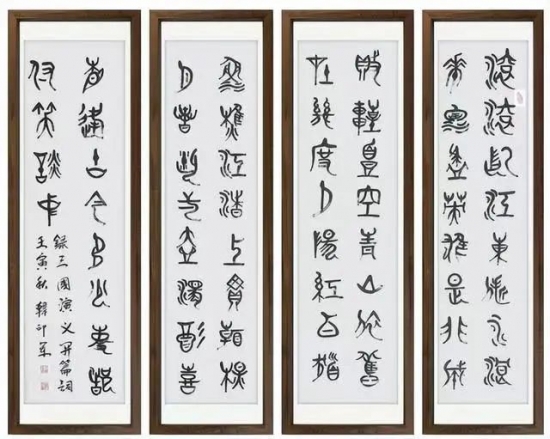 滾滾長江東逝水浪
花淘盡英雄是非成
敗轉頭空青山依舊
在幾度夕陽紅白髮
漁樵江渚上慣看秋
月春風一壺濁酒喜
相逢古今多少事都
付笑談中
錄三國演义開篇詞
壬寅秋